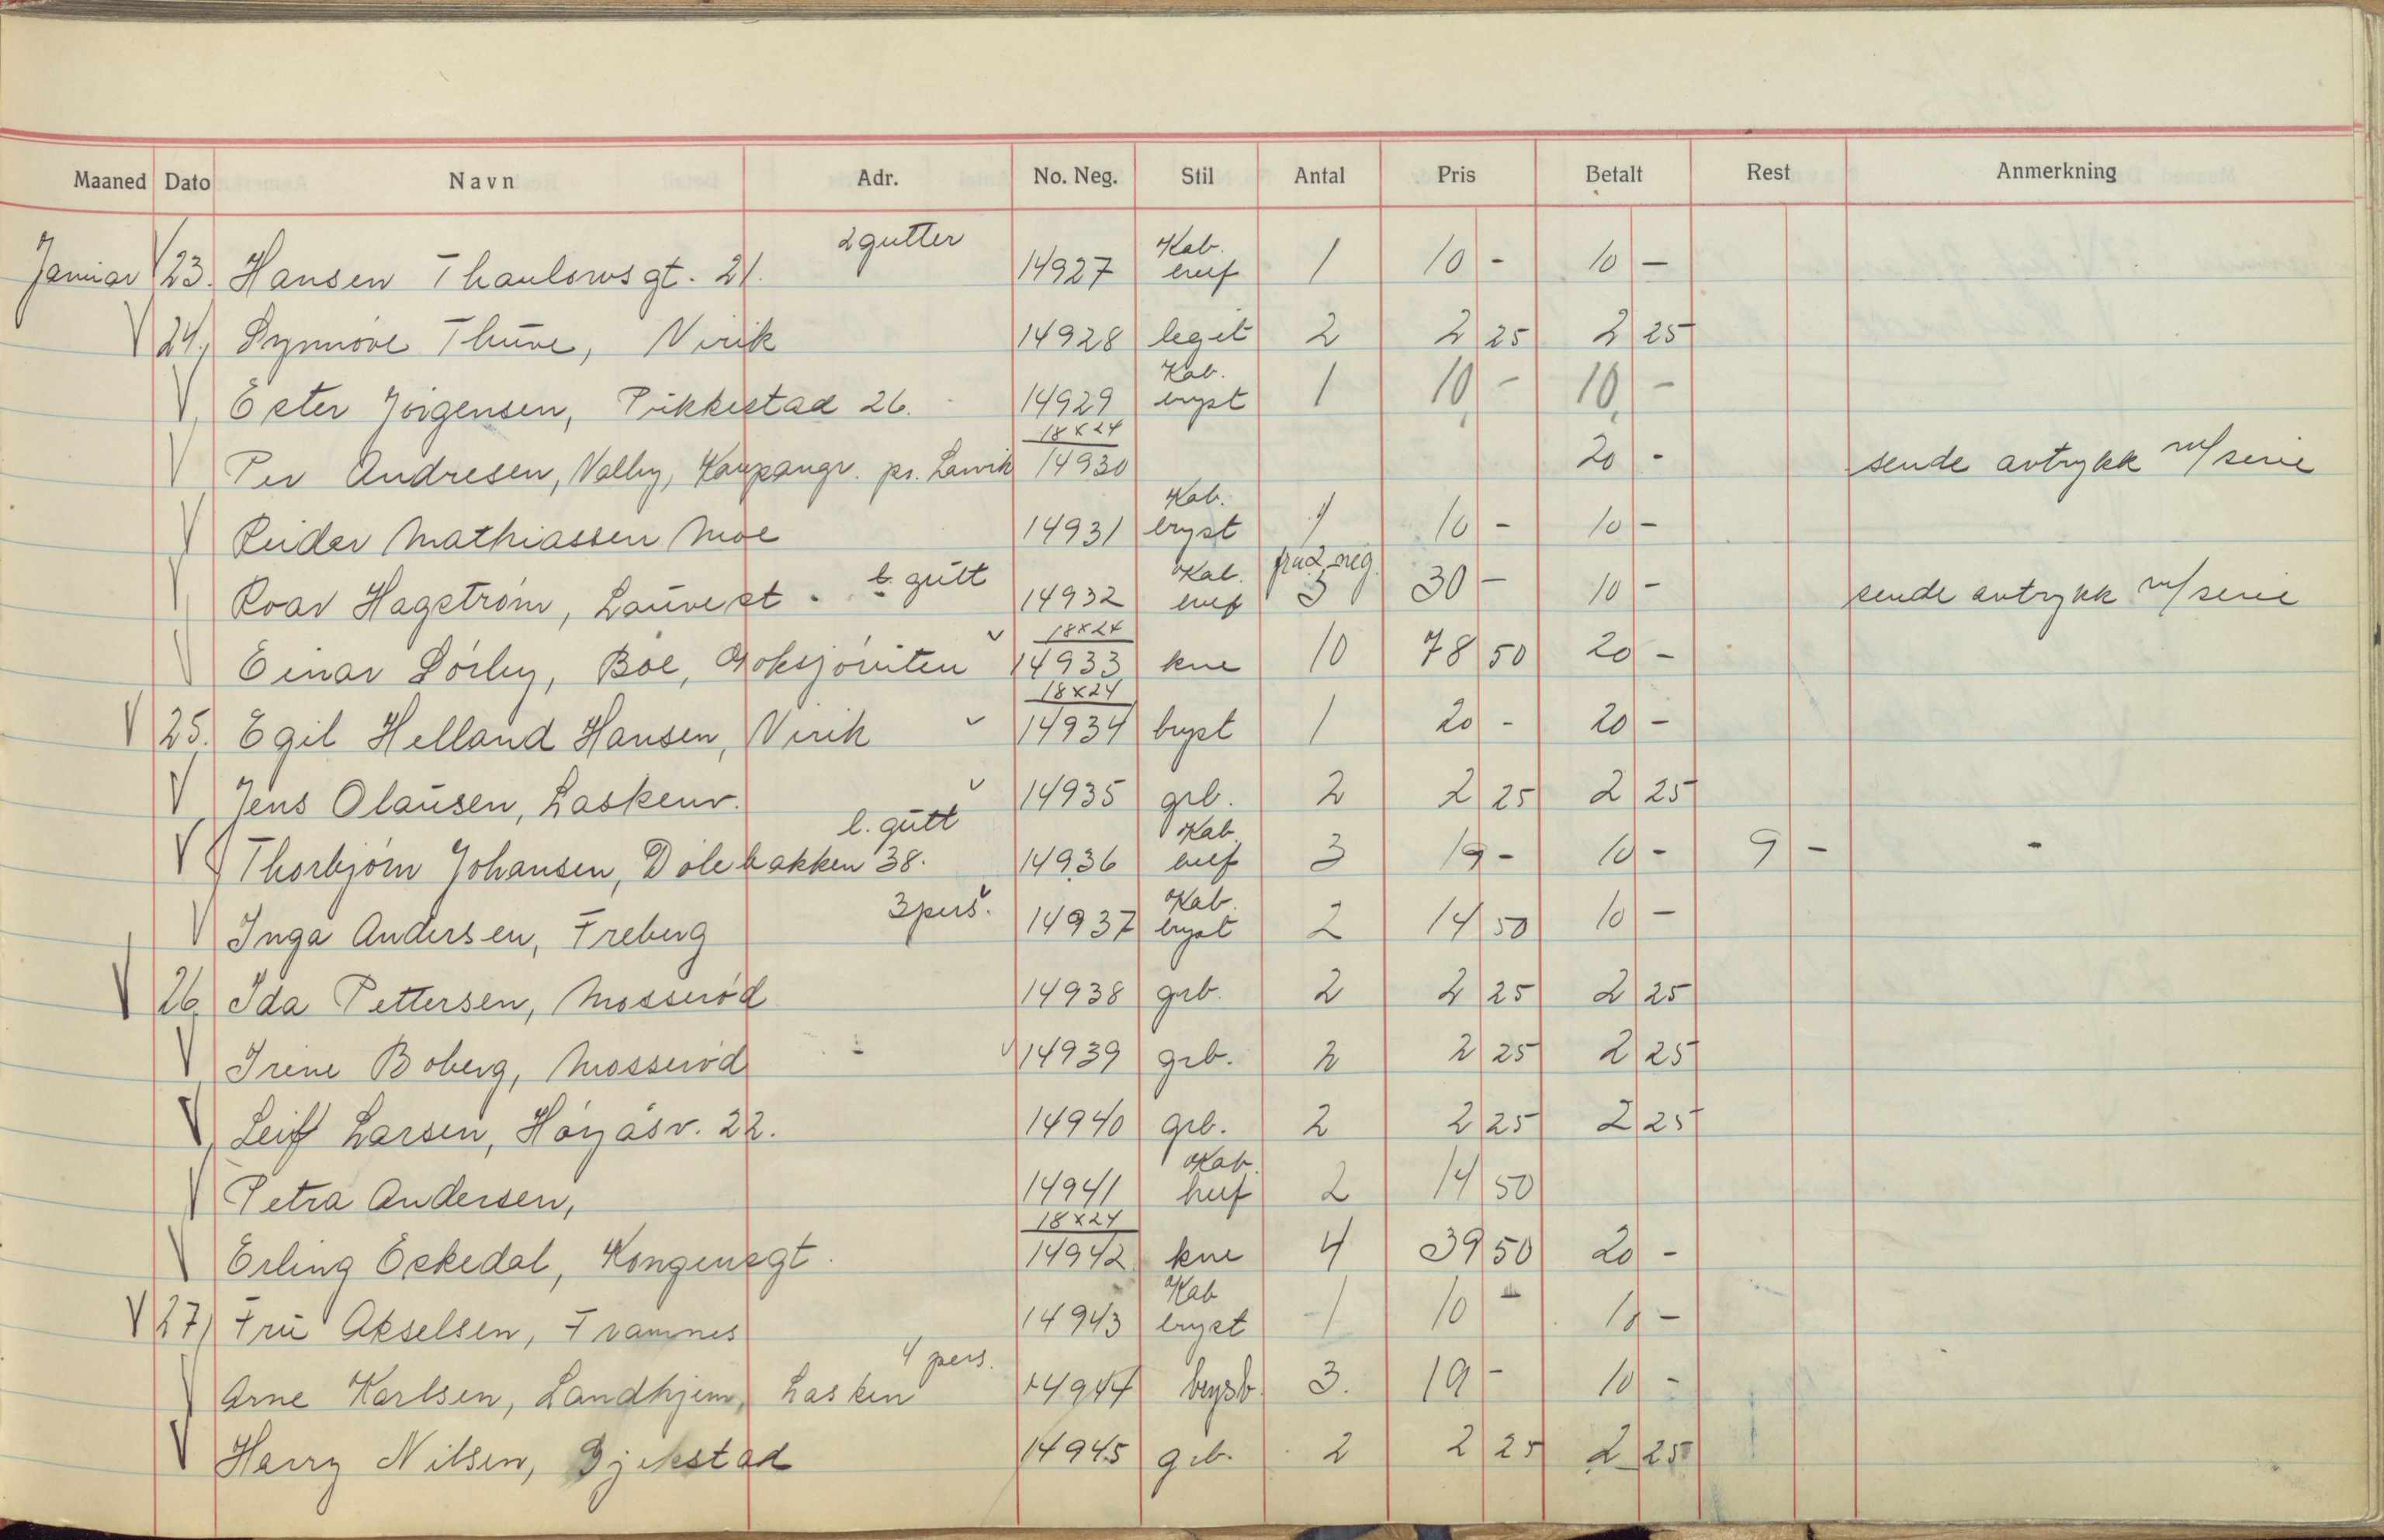 Maaned Dato Navn Adr. No. Neg. Stil Antal Pris Betalt Rest Anmerkning
Januar 23. Hansen Thaulowsgt. 21. 2 gutter 14927 Kab. 1 10 - 10 -
24. Synnöve Thune, Virik 14928 legit 2 2 25 2 25
Ester Jörgensen, Pukkestad 26. 14929 Kab. bryst 1 10 - 10 -
Per Andresen, Valby, Kaupangr. pr. Larvik 18x24 14930 20 - sende avtrykk m/serie
Reidar Mathiassen Moe 14931 Kab. bryst 1 10 - 10 -
Roar Hagström, Lauvest. l. gutt 14932 Kab. fra 2 neg. 3 30 - 10 - sende avtrykk m/serie
Einar Sörby, Böe, Goksjöruten 18x24 14933 kne 10 78 50 20 -
25. Egil Helland Hansen, Virik 18x24 14934 bryst 1 20 - 20 -
Jens Olausen, Laskenv. 14935 grb. 2 2 25 2 25
Thorbjörn Johansen, Dölebakken 38. l. gutt 14936 Kab. 3 19 - 10 - 9 - -
Inga Andersen, Freberg 3 pers. 14937 Kab. bryst 2 14 50 10 -
26. Ida Pettersen, Mosseröd 14938 grb. 2 2 25 2 25
Irene Boberg, Mosseröd 14939 grb. 2 2 25 2 25
Leif Larsen, Höyåsv. 22. 14940 grb. 2 2 25 2 25
Petra Andersen, 14941 Kab. 2 14 50
Erling Eskedal, Kongensgt. 18x24 14942 kne 4 39 50 20 -
27. Fru Akselsen, Framnes 14943 Kab bryst 1 10 - 10 -
Arne Karlsen, Landhjem, Lasken 4 pers. 14944 brysb. 3. 19 - 10 -
Harry Nilsen, Gjekstad 14945 grb. 2 2 25 2 25